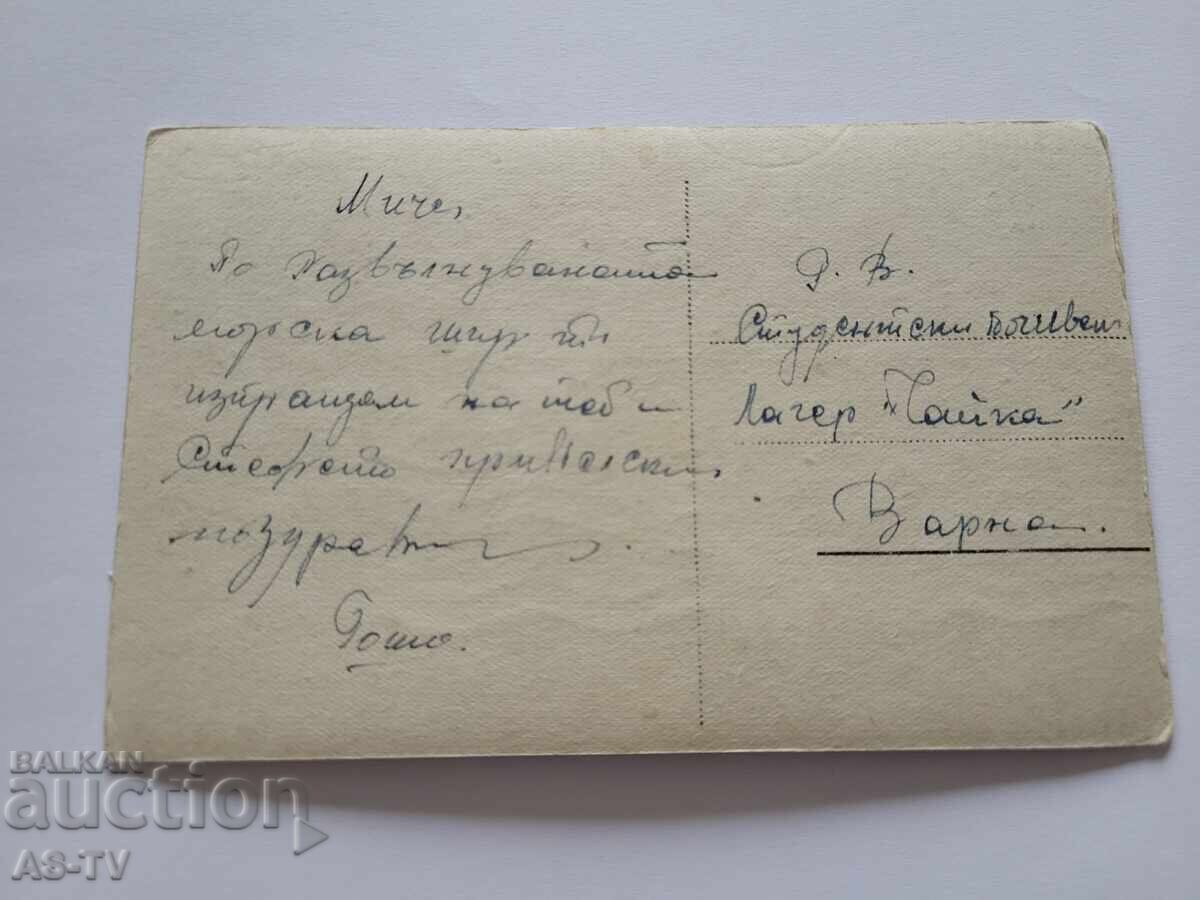 Миче,
По Развълнуваната
морска шир ти
изпращам на теб и
Стефето приятелски
поздрави
Гошо.
Р. В.
Студентски почивен
Лагер "Чайка"
Варна.
BALKAN
auction
AS-TV